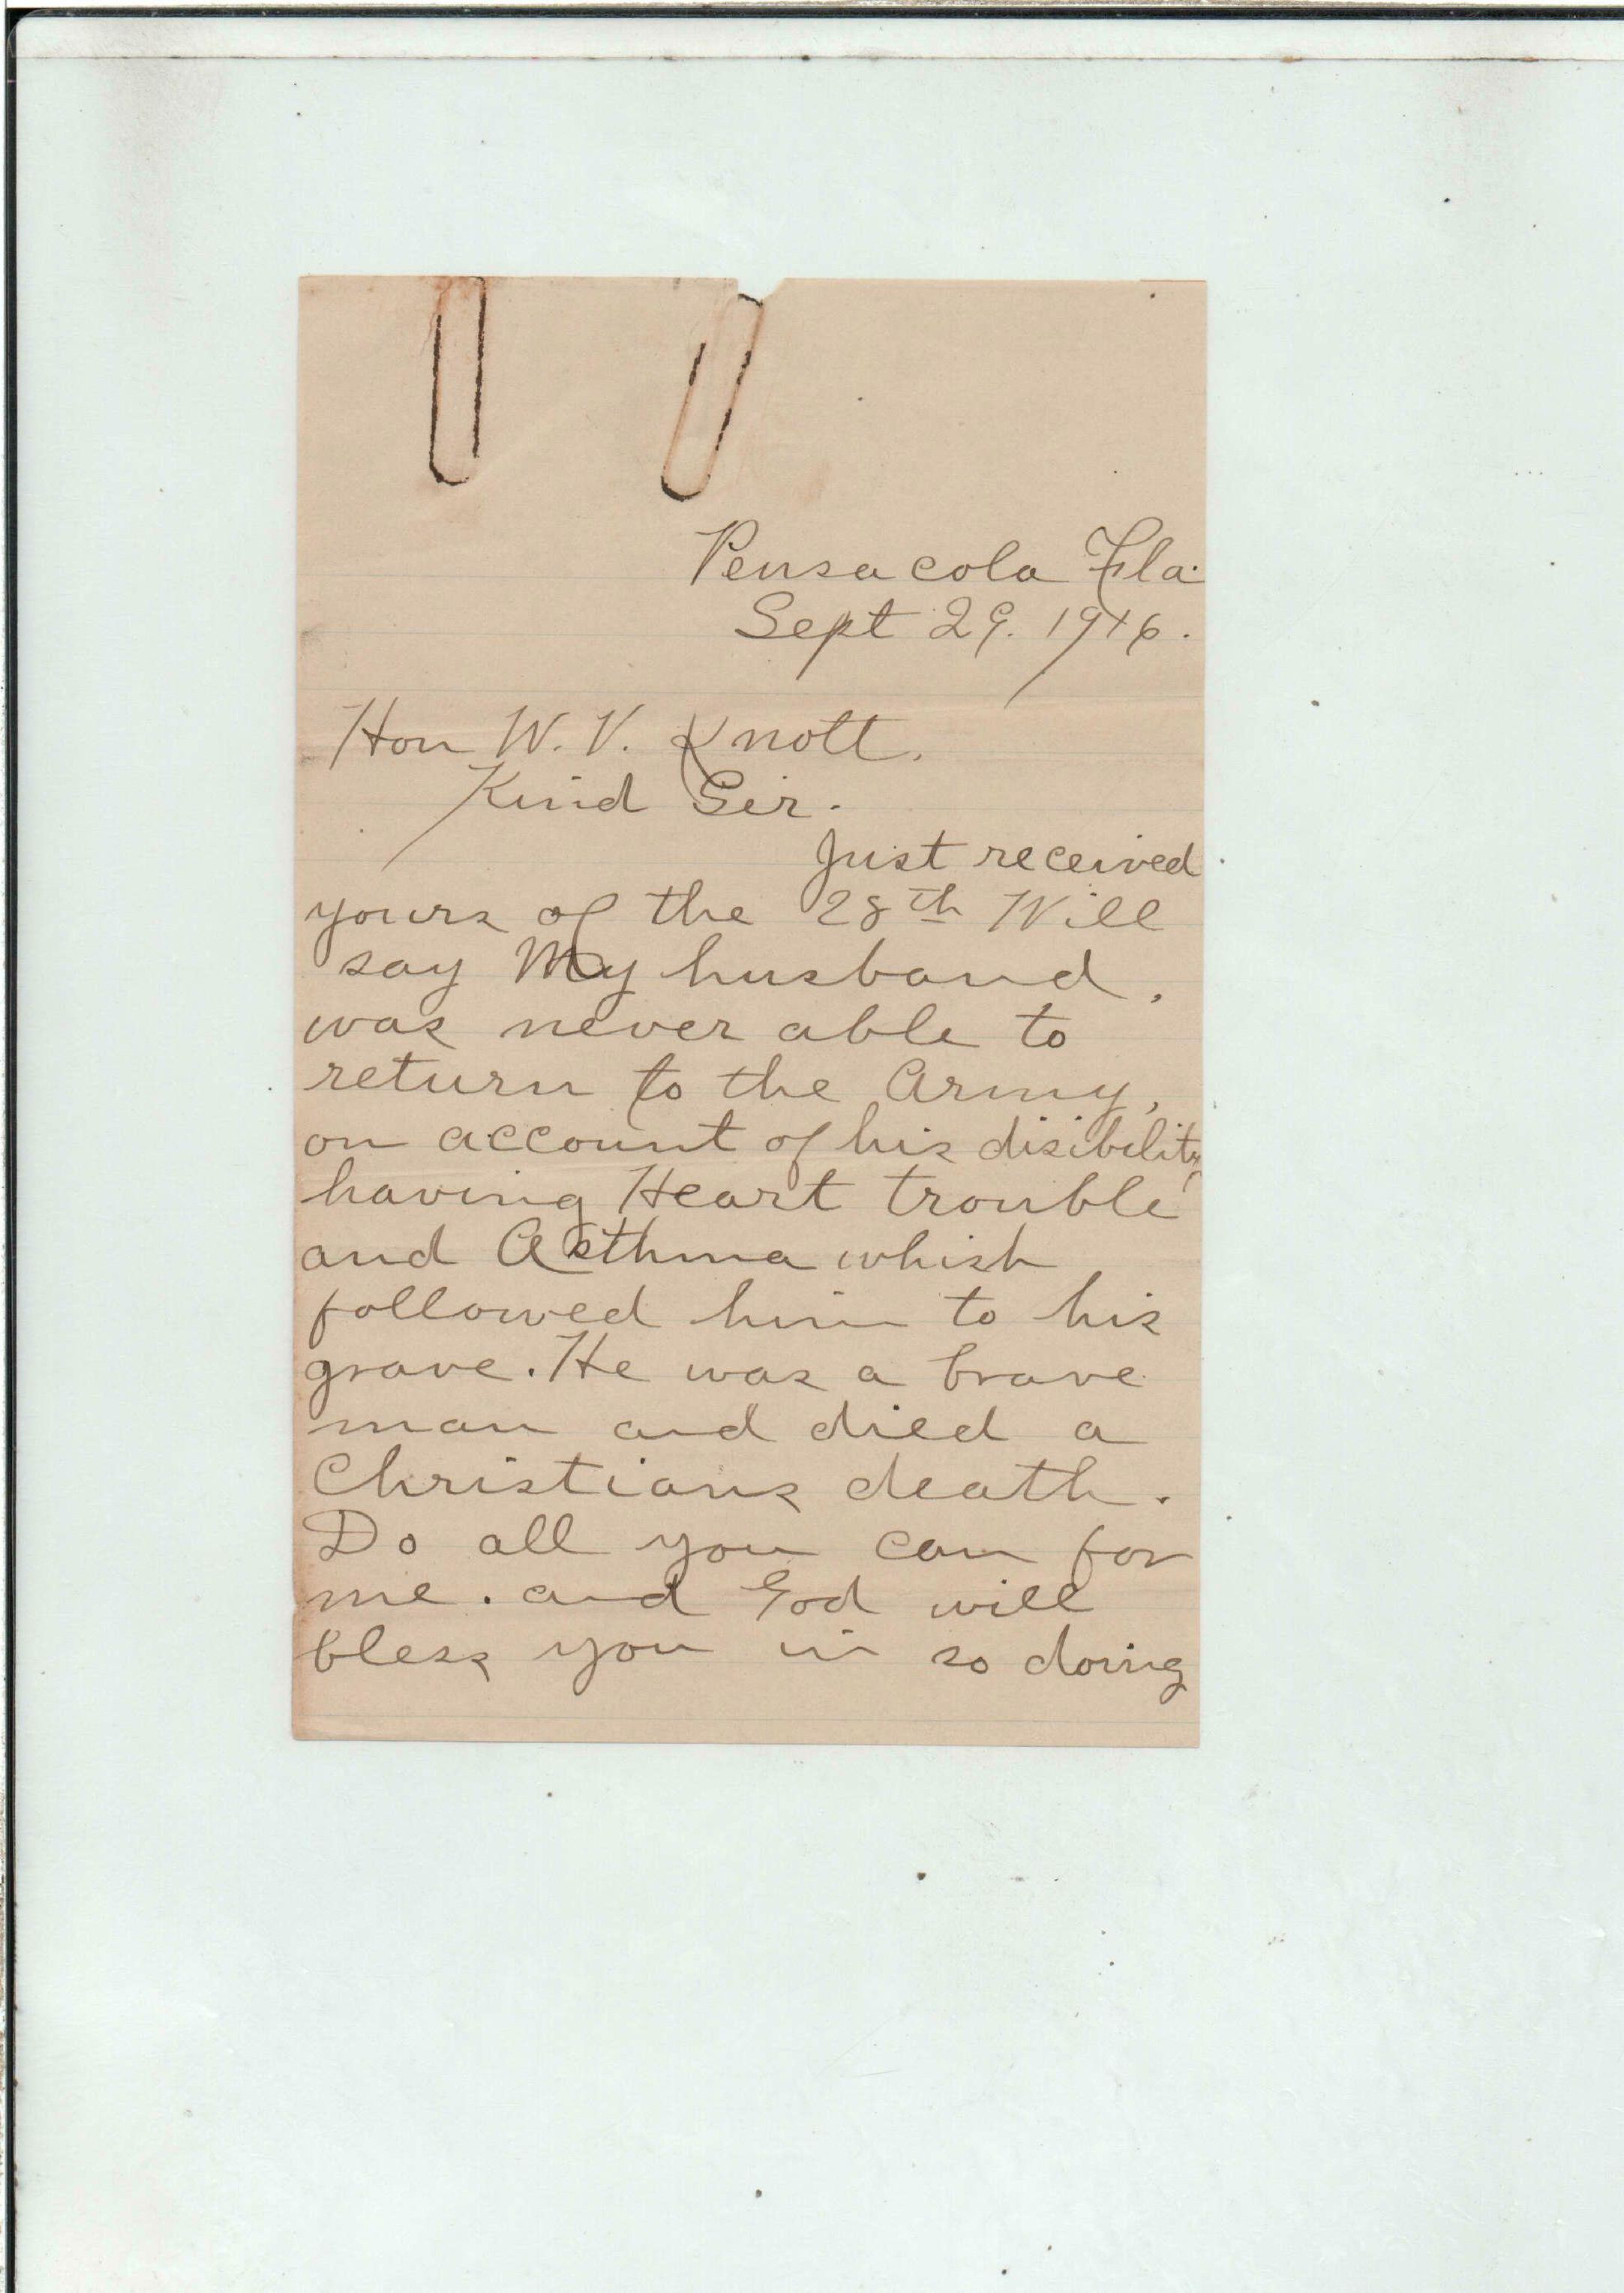 Pensacola Fla.
Sept 29. 1916.
Hon W. V. Knott.
Kind Sir.
Just received
yours of the 28th Will
say My husband,
was never able to
return to the Army,
on account of his disibility,
having Heart trouble
and Asthma whish
followed him to his
grave. He was a brave
man and died a
Christians death.
Do all you can for
me. and God will
bless you in so doing